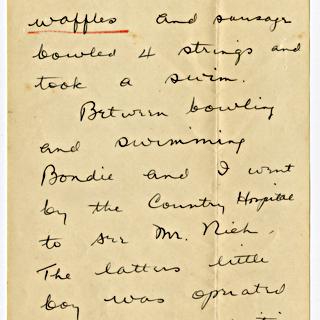 waffles and sausage
bowled 4 strings and
took a swim.
Between bowling
and swimming
Bondie and I went
by the Country Hospital
to see Mr. Nieh.
The latters little
boy was operated